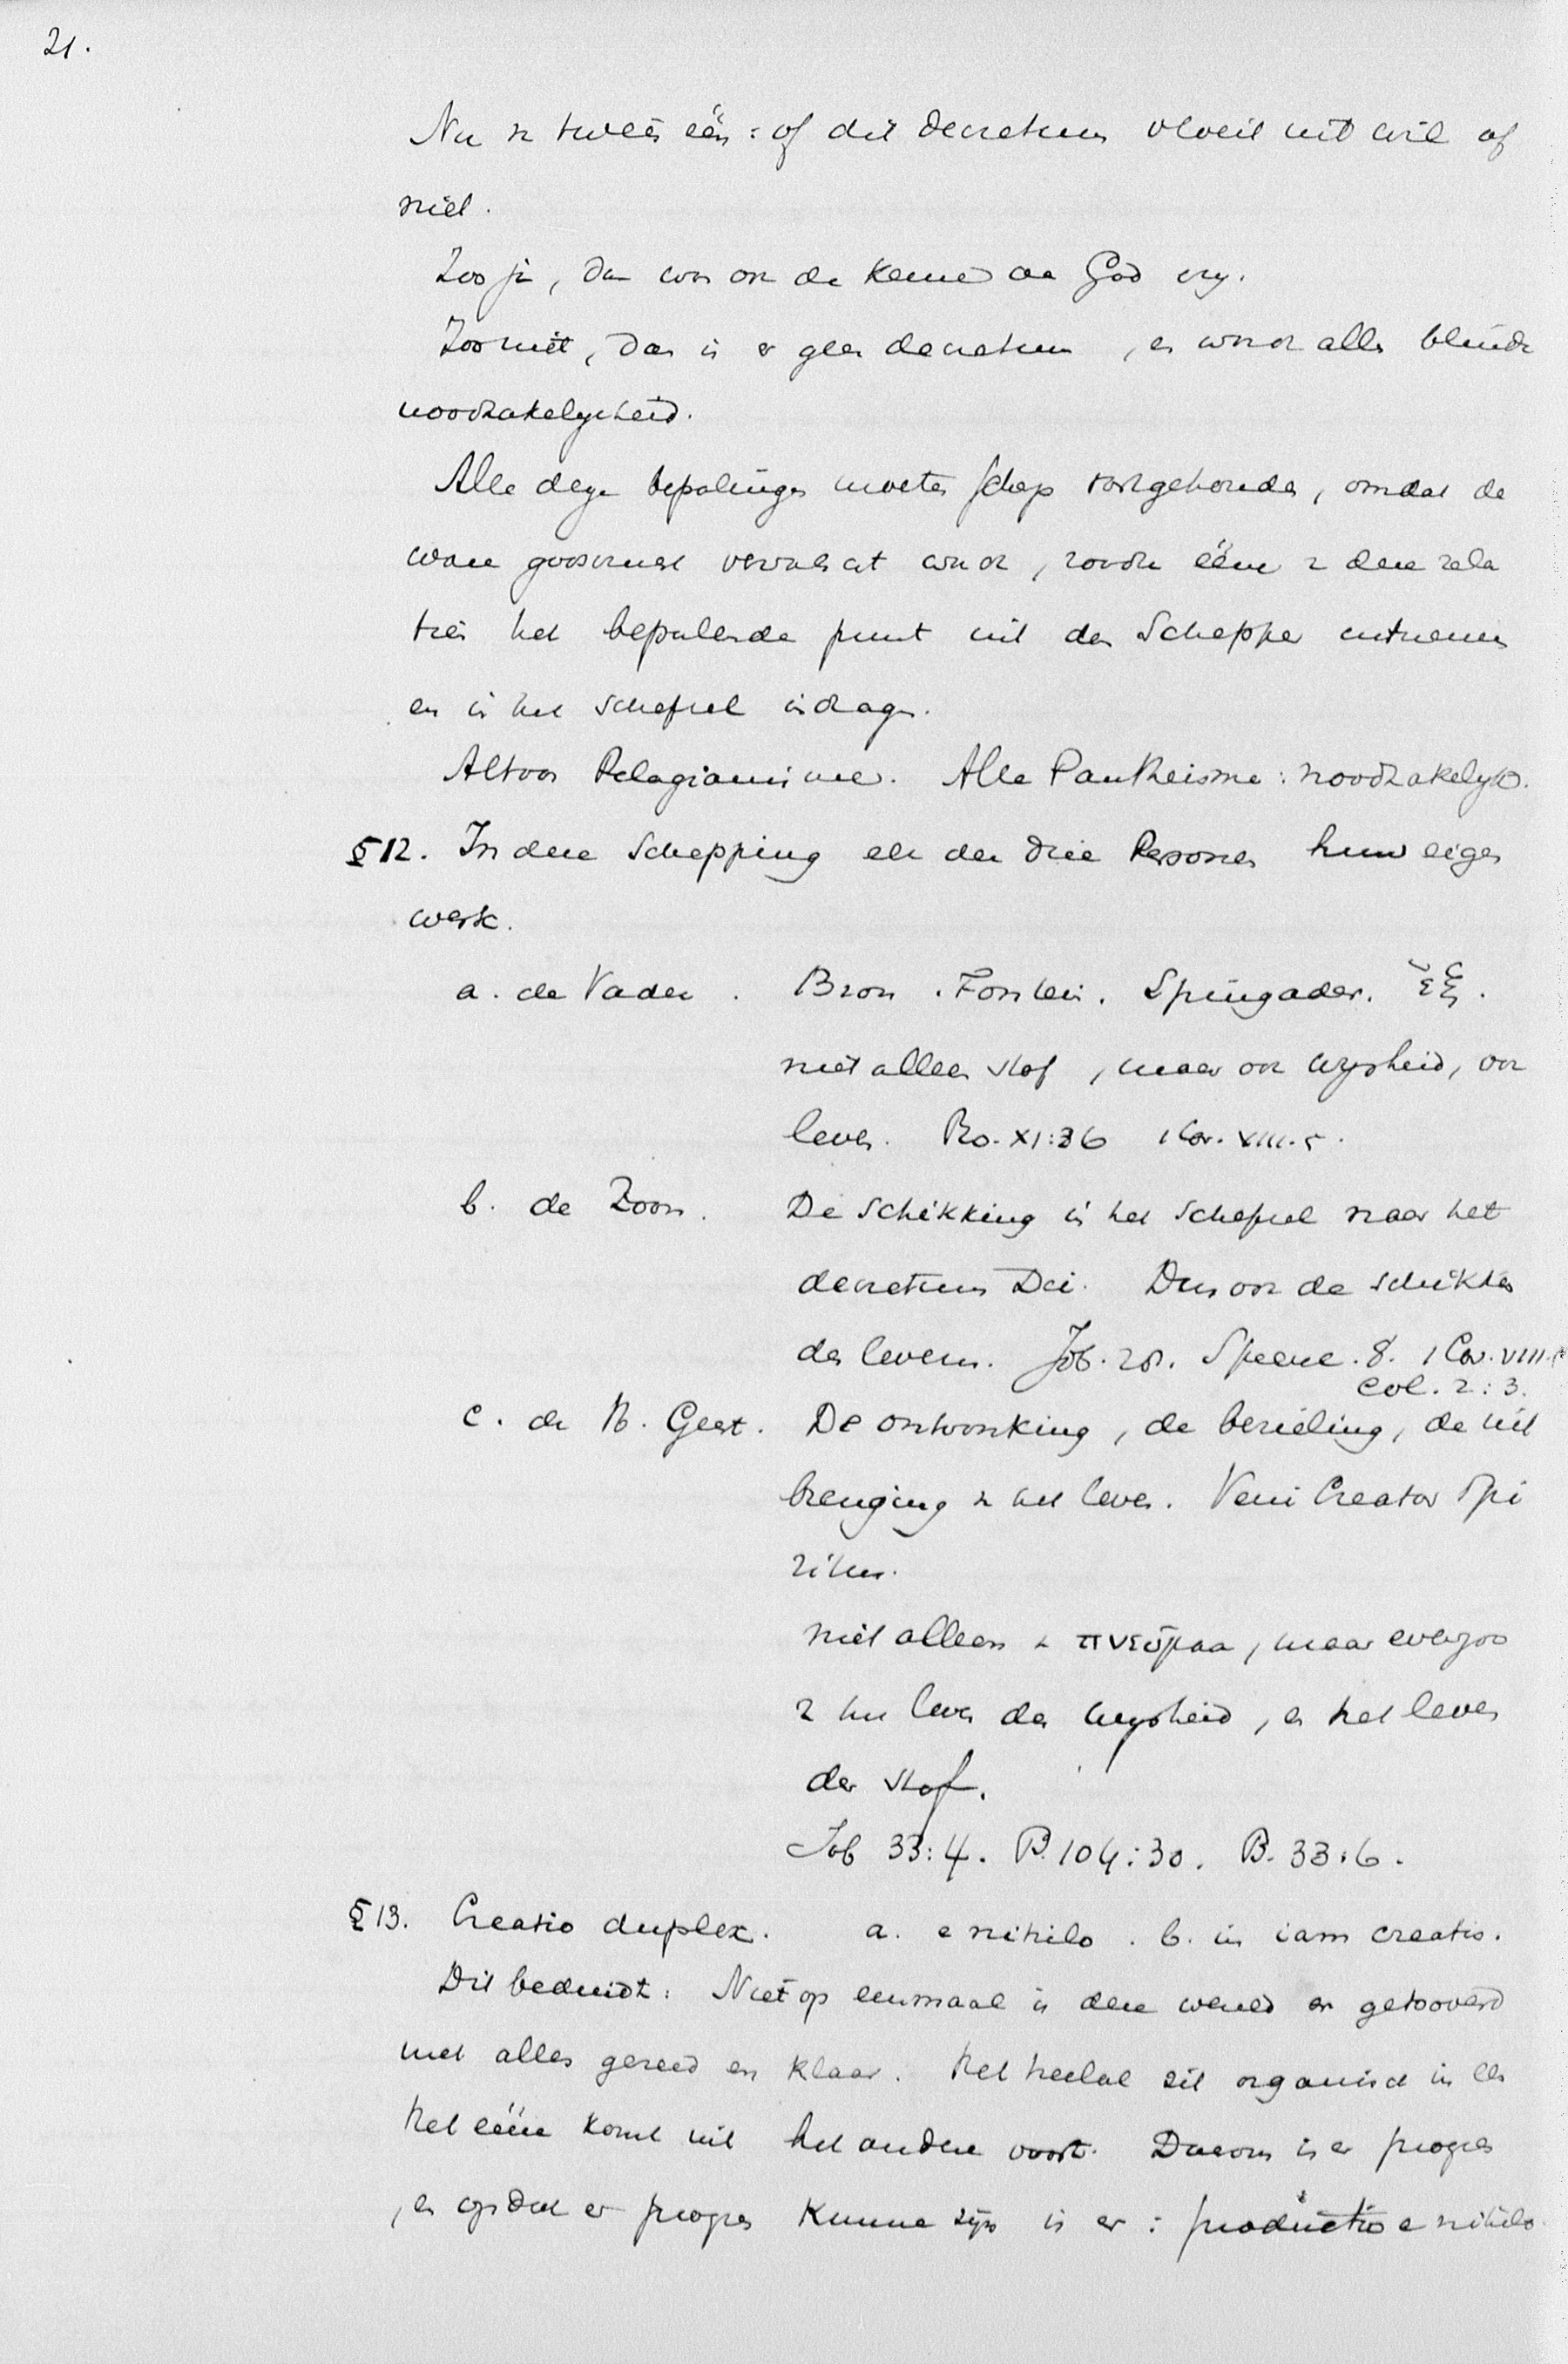 21.
Nu v tweeën één: of dit decretum vloeit uit wil of
niet.
Zoo ja, dan was ook de keuze aan God vrij.
Zoo niet, dan is er geen decretum, en wordt alles blinde
noodzakelijkheid.
Alle deze bepalingen moeten scherp vastgehouden, omdat de
ware godsvrucht vervalscht wordt, zoodra ééne v deze rela
tiën het bepalende punt uit den Schepper uitnemen
en in het schepsel indragen.
Altoos Pelagianisme. Alle Pantheisme: noodzakelijkh.
§12. In deze Schepping elk der drie Personen hun eigen
werk.
a. de Vader. Bron. Fontein. Springader. ἐξ.
niet alleen stof, maar ook wijsheid, ook
leven. Ro. XI:36 1 Cor. VIII.5.
b. de Zoon. De schikking in het schepsel naar het
decretum Dei. Dus ook de schikking
des levens. Job. 28. Spreuk. 8. 1 Cor. VIII.5
Col. 2:3.
c. de H. Geest. De ontvonking, de bezieling, de uit
brenging v het leven. Veni Creator Spi
ritus.
niet alleen v πνεῦμαα, maar evenzoo
v het leven der wijsheid, en het leven
der stof.
Job 33:4. Ps. 104:30. Ps. 33:6.
§13. Creatio duplex. a. e nihilo. b. in iam creatis.
Dit beduidt: Niet op eenmaal is deze wereld er getooverd
met alles gereed en klaar. Het heelal zit organisch in elk
het ééne komt uit het andere voort. Daarom is er progres
, en opdat er progres kunne zijn is er: productio e nihilo.